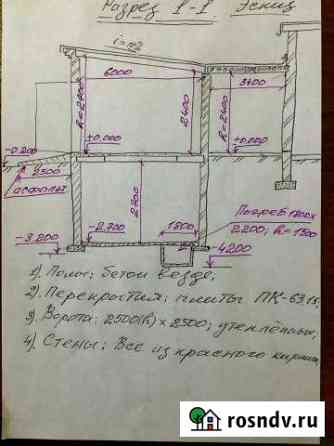 Разрез 1-1. Эскиз
6000
h=2800
2400
h=2400
3400
-0.200
±0.000
±0.000
2500
асфальт
2700
-2.700
1800
-3.200
-4200
Погреб
2200; h=1500
1). Полы; бетон везде;
2). Перекрытия; плиты ПК-63.15
3). Ворота: 2500(h) x 2500; утеплённые;
4). Стены; Все из красного кирпича
rosndv.ru